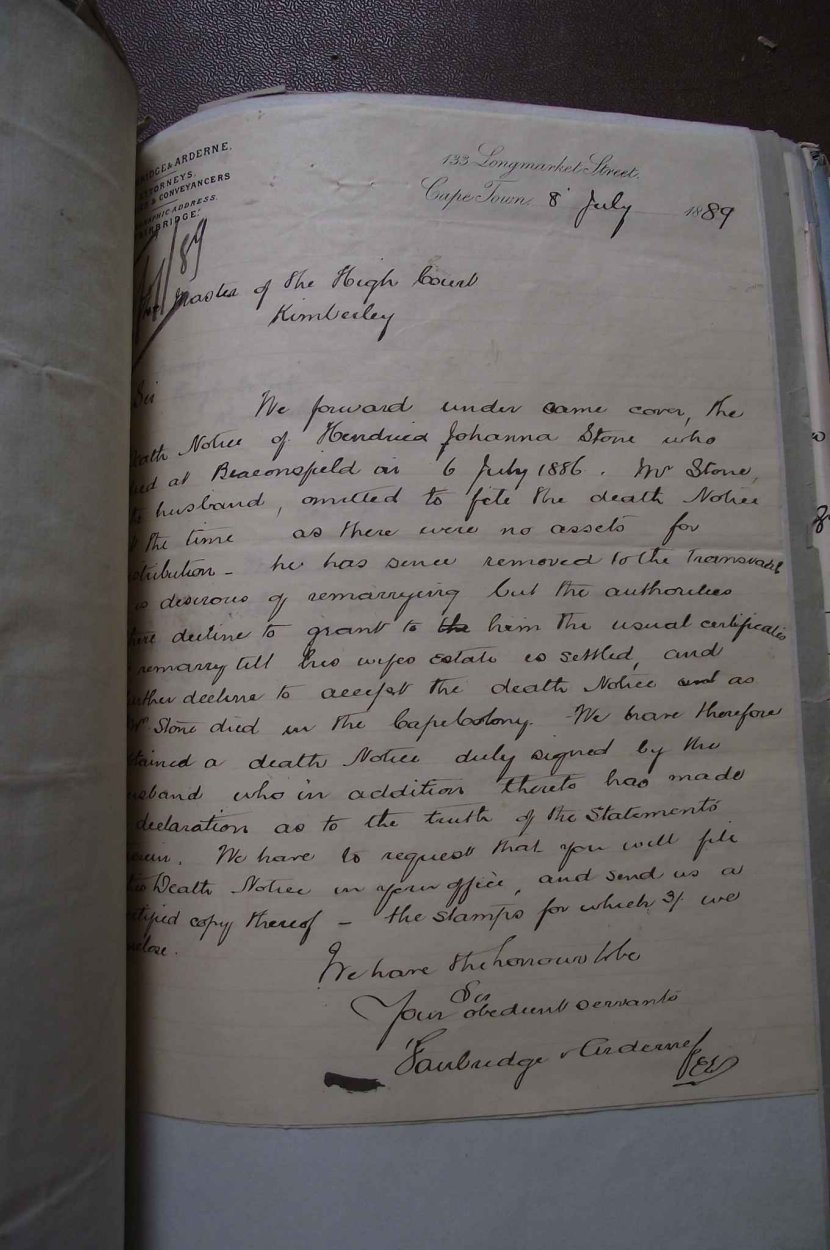 RIDGE & ARDERNE.
TTORNEYS.
& CONVEYANCERS
RAPHIC ADDRESS.
AIRBRIDGE."
133 Longmarket Street.
Cape Town, 8 July 1889
/89
The Master of the High Court
Kimberley
Sir
We forward under came cover, the
Death Notice of Hendried Johanna Stone who
ied at Beaconsfield on 6 July 1886. Mr Stone,
husband, omitted to file the death Notice
t the time as there were no assets for
stribution - he has since removed to the Transvaal
is desirous of remarrying but the authorities
there decline to grant to the him the usual certificate
remarry till his wifes Estate is settled, and
urther decline to accept the death Notice and as
Mrs. Stone died in the Cape Colony. We have therefore
btained a death Notice duly signed by the
usband who in addition thereto has made
declaration as to the truth of the statements
erein. We have to request that you will file
this Death Notice in your office, and send us a
ertified copy thereof - the stamps for which 3/ we
nclose.
We have the honour to be
Sir
Your obedient servants
Fairbridge & Arderne